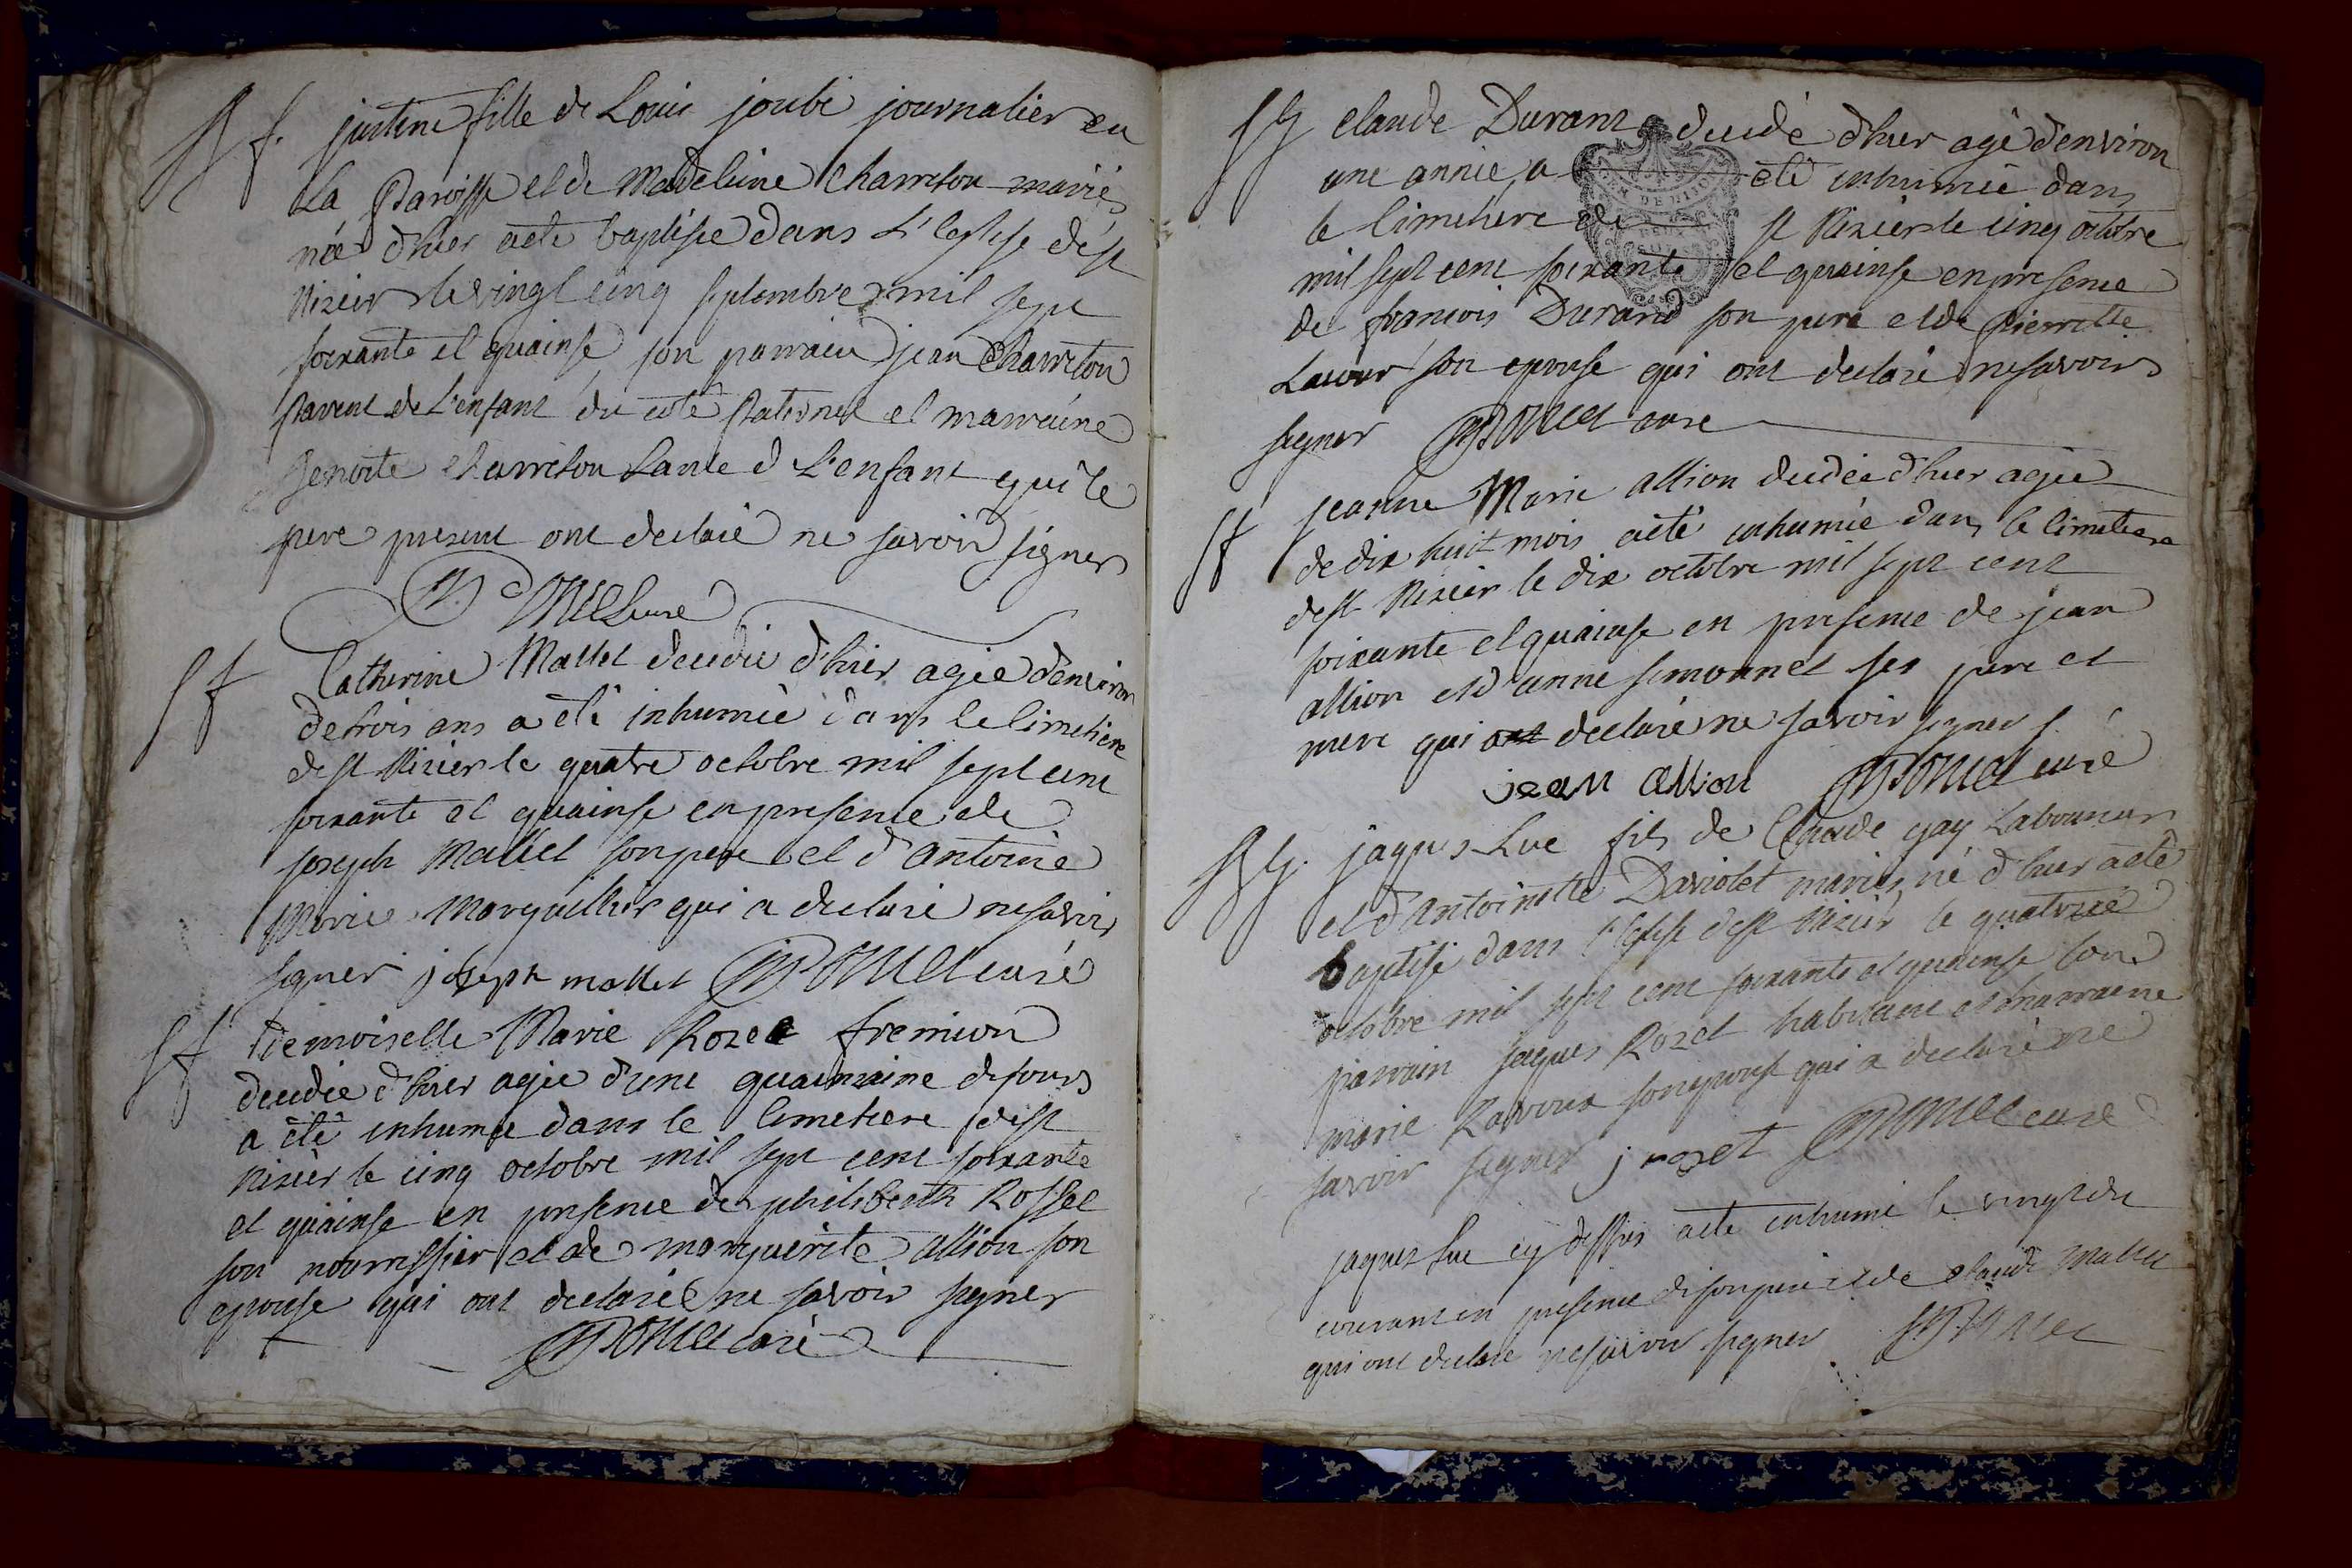 B f. justine fille de Louis joubé journalier en
La Paroisse et de Madeleine charreton mariés
née d'hier aeté baptisée dans L'Eglise de st
Nizier le vingt cinq septembre mil sept
soixante et quainse son parrain jean Charreton
Parent de L'enfant du coté Paternel et marraine
Benoite charreton tante d L'enfant qui le
pere present ont declaré ne savoir signer
curé
S f Catherine Mallet decedée d'hier agée denviron
de trois ans a été inhumée dans le Cimetiere
de st Nizier le quatre octobre mil sept cent
soixante et quainse en presence de
joseph Mallet son pere et d'Antoine
Marie Marguillier qui a declaré ne savoir
signer joseph mallet curé
S f demoiselle Marie Rozee fremion
decedée d'hier agée d'une quainzaine de jours
a été inhumée dans le Cimetiere de st
Nizier le cinq octobre mil sept cent soixante
et quainse en presence de philiberth Rossel
son nourrissier et de marguerite allion son
epouse qui ont declaré ne savoir signer
curé
S g Claude Durant decedé d'hier agé d'environ
une année a été inhumée dans
le Cimetiere de st Nizier le cinq octobre
mil sept cent soixante et quainse en presence
de francois Durand son pere et de Pierrette
son epouse qui ont declaré ne savoir
signer curé
S f jeanne Marie allion decedée d'hier agée
de dix huit mois aeté inhumée dans le Cimetiere
de st Nizier le dix octobre mil sept cent
soixante et quainse en presence de jean
allion et d'anne simonnet ses pere et
mere qui ont declaré ne savoir signer
jean allion curé
B g. jaques Luc fils de Claude gay Laboureur
et d'Antoinette Daviolet mariés né d'hier aeté
baptisé dans l'Eglise de st Nizier le quatorze
octobre mil sept cent soixante et quainse son
parrain jaques Rozet habitant et marraine
marie Ravoux son epouse qui a declaré ne
savoir signer j rozet curé
jaques Luc cy dessus aeté inhumé le vingt du
courant en presence de son pere et de claude Mallet
qui ont declaré ne savoir signer